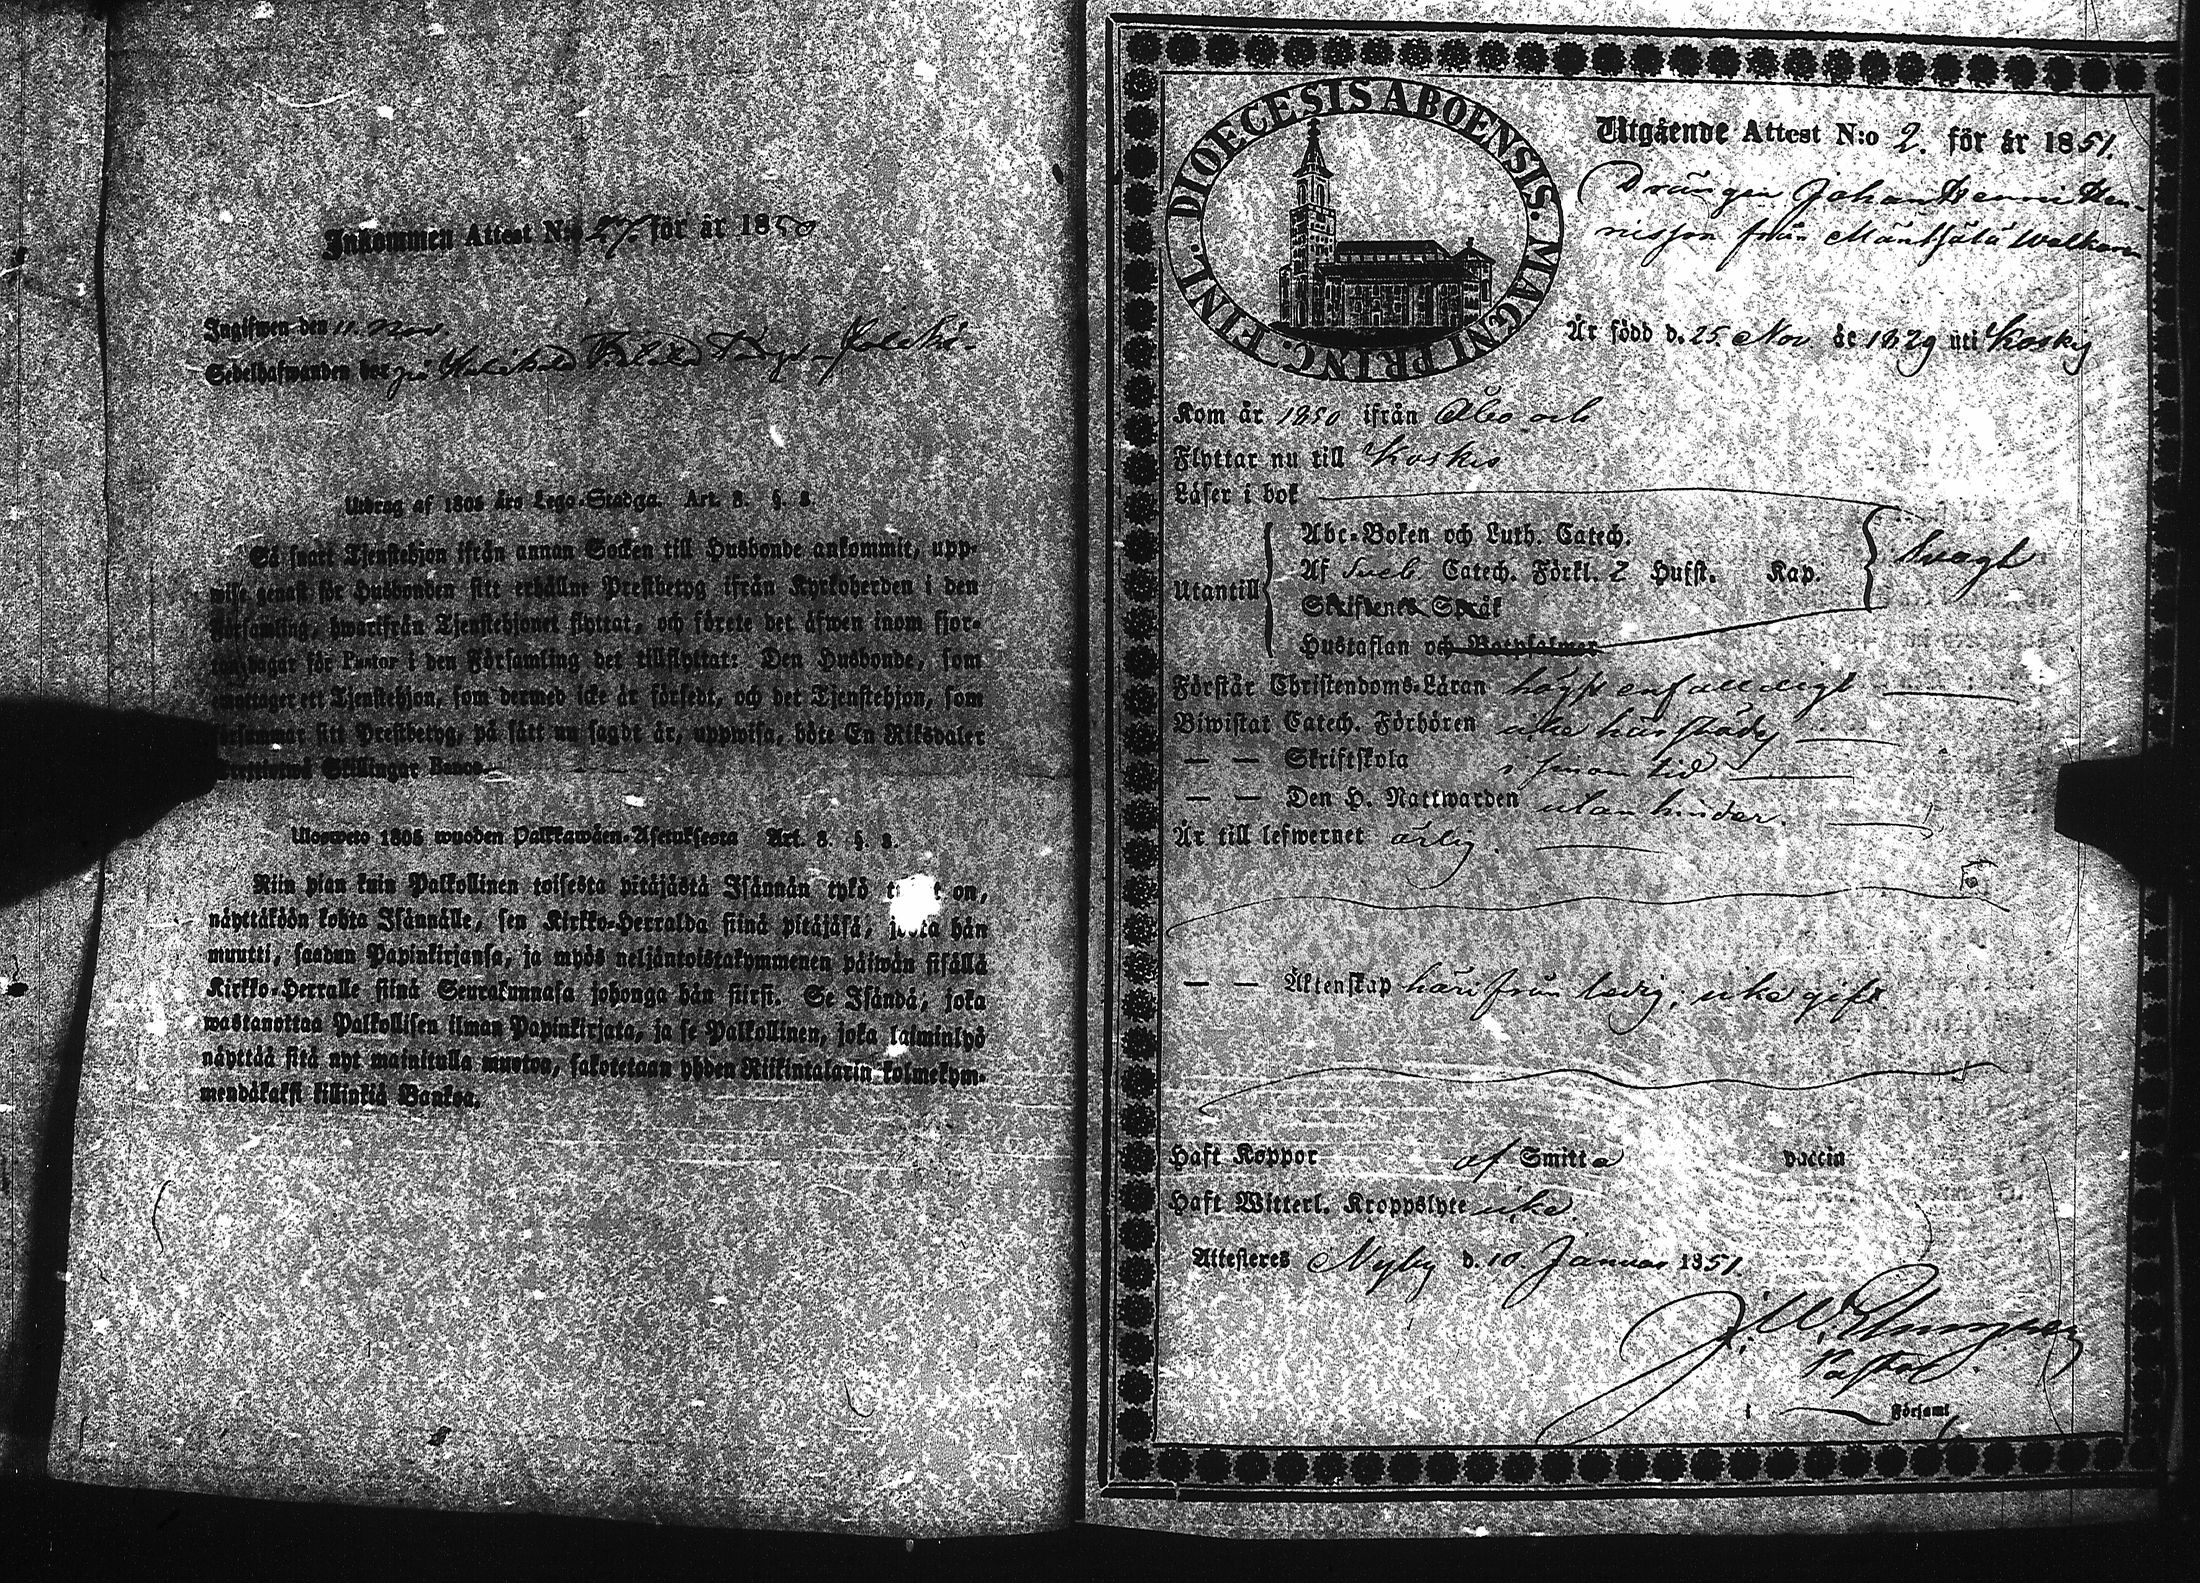 Inkommen Attest N:o 27. för år 1850
Ingifwen den 11. Nov.
Sedelhafwanden bor på
Utdrag af 1805 års Lego-Stadga. Art. 8. §. 8.
Så snart Tjenstehjon ifrån annan Socken till Husbonde ankommit, upp-
wise genast för Husbonden sitt erhållne Prestbetyg ifrån Kyrkoherden i den
Församling, hwarifrån Tjenstehjonet flyttat, och förete det äfwen inom fjor-
ton dagar för Pastor i den Församling det tillflyttat: Den Husbonde, som
emottager ett Tjenstehjon, som dermed icke är försedt, och det Tjenstehjon, som
försummar sitt Prestbetyg, på sätt nu sagdt är, uppwisa, böte En Riksdaler
Skillingar Banco.
Ulosweto 1805 wuoden Palkkawäen-Asetuksesta Art. 8. §. 8.
Niin pian kuin Palkollinen toisesta pitäjästä Isännän tykö on,
näyttäköön kohta Isännälle, sen Kirkko-Herralda siinä pitäjäsä, josta hän
muutti, saadun Papinkirjansa, ja myös neljäntoistakymmenen päiwän sisällä
Kirkko-Herralle siinä Seurakunnasa johonga hän siirsi. Se Isändä, joka
wastanottaa Palkollisen ilman Papinkirjata, ja se Palkollinen, joka laiminlyö
näyttää sitä nyt mainitulla muotoa, sakotetaan yhden Riikintalarin kolmekym-
mendäkaksi killinkiä Bankoa.
DIOECESIS ABOENSIS. MAGNI PRINC. FINL.
Utgående Attest N:o 2. för år 1851.
Drängen Johan Henric Hen-
ricsson från Mäntsälä
Är född d. 25 Nov år 1829 uti Koskis
Kom år 1850 ifrån Åbo och
Flyttar nu till Koskis
Läser i bok
Abc-Boken och Luth. Catech.
Af Sveb. Catech. Förkl. 2 Hufst. Kap. swagt
Utantill
Skriftenes Språk
Hustaflan och Botpsalmer
Förstår Christendoms-Läran högst enfalldigt
Biwistat Catech. Förhören icke härstädes
— — Skriftskola i sinom tid
— — Den H. Nattwarden utan hinder.
Är till lefwernet ärlig.
— — Äktenskap härifrån ledig, icke gift
Haft Koppor af Smitta vaccin
Haft Witterl. Kroppslyte icke
Attesteres Nyby d. 10 Januar 1851.
Pastor.
i Församl